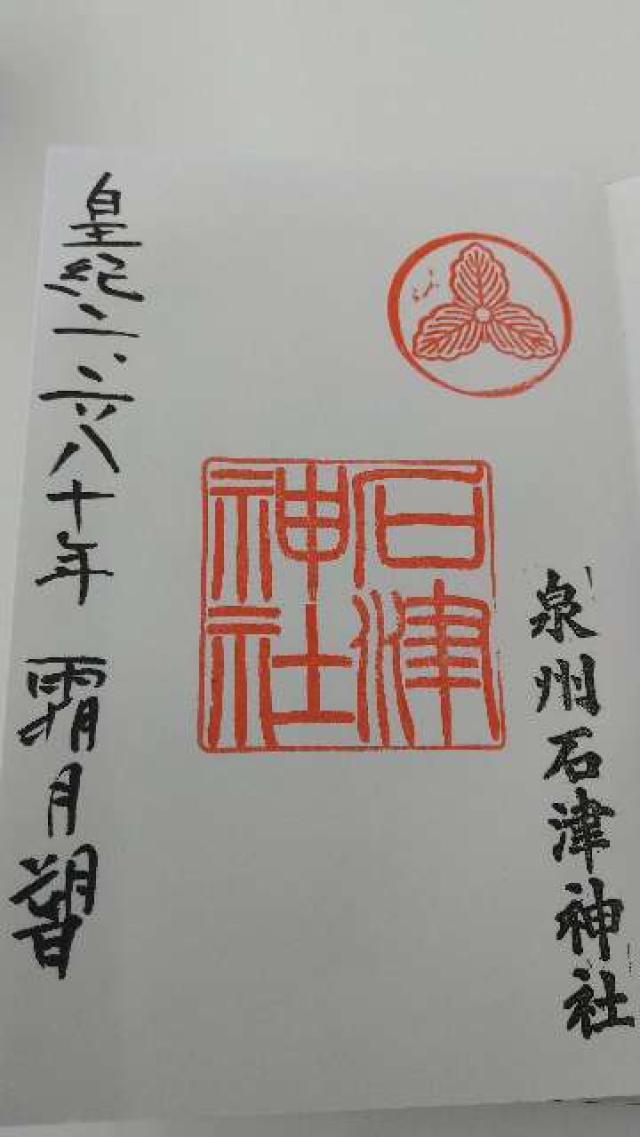 泉州石津神社
石津
神社
皇紀二六八十年 霜月朔日